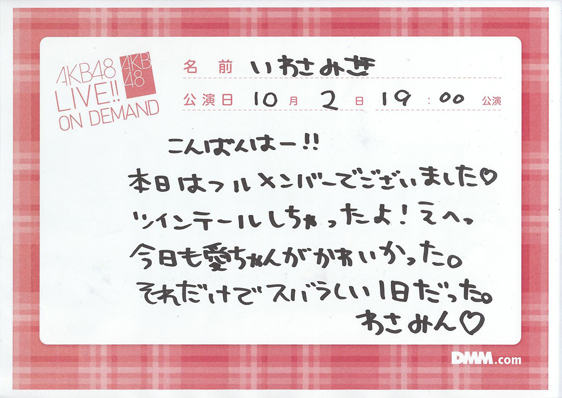 AKB48
LIVE!!
ON DEMAND
AKB
48
名前 いわさみさき
公演日 10月2日 19:00 公演
こんばんはー!!
本日はフルメンバーでございました♡
ツインテールしちゃったよ!えへっ
今日も愛ちゃんがかわいかった。
それだけでスバラしい1日だった。
わさみん♡
DMM.com